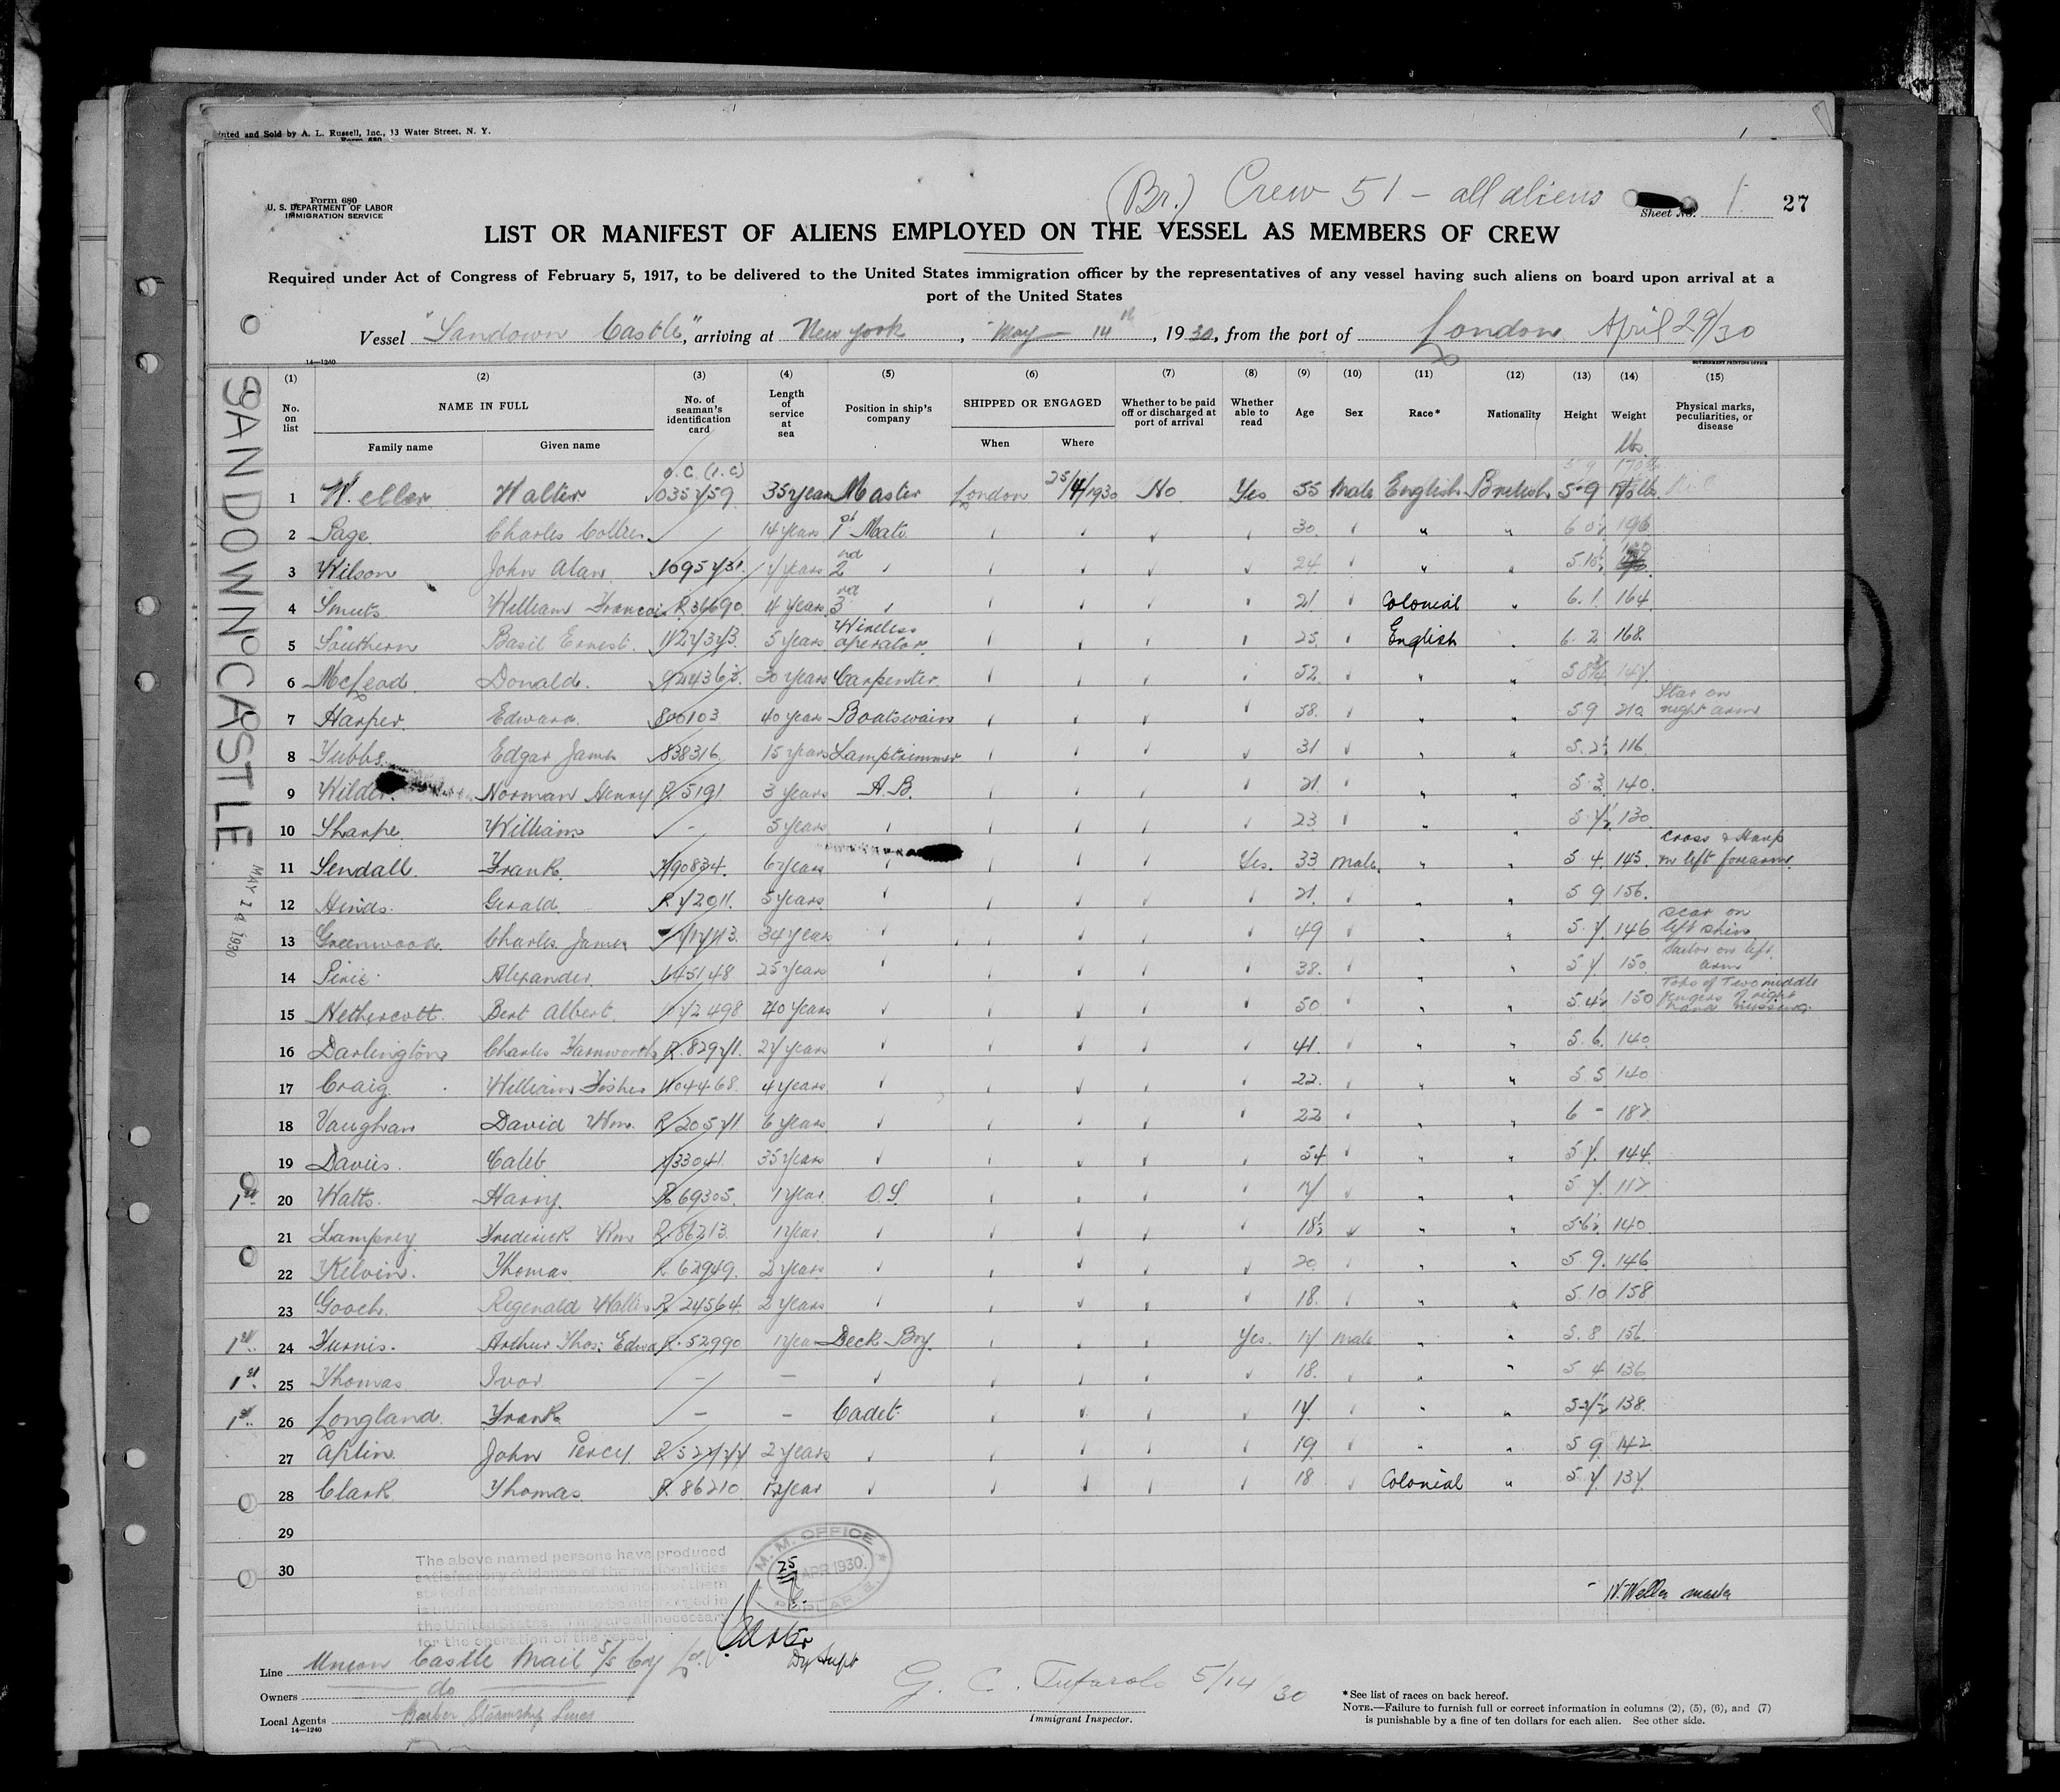 nted and Sold by A. L. Russell, Inc., 33 Water Street, N. Y.
Form 680
(Br.) Crew 51 - all aliens
Form 680
U. S. DEPARTMENT OF LABOR
IMMIGRATION SERVICE
Sheet No. 1.
27
LIST OR MANIFEST OF ALIENS EMPLOYED ON THE VESSEL AS MEMBERS OF CREW
Required under Act of Congress of February 5, 1917, to be delivered to the United States immigration officer by the representatives of any vessel having such aliens on board upon arrival at a
port of the United States
Vessel "Sandown Castle", arriving at New York, May 14th, 1930, from the port of London April 29/30
14—1240 GOVERNMENT PRINTING OFFICE
(1) (2) (3) (4) (5) (6) (7) (8) (9) (10) (11) (12) (13) (14) (15)
No. on list NAME IN FULL No. of seaman's identification card Length of service at sea Position in ship's company SHIPPED OR ENGAGED Whether to be paid off or discharged at port of arrival Whether able to read Age Sex Race* Nationality Height Weight Physical marks, peculiarities, or disease
Family name Given name When Where
lbs.
1 Weller Walter 035759 35 years Master London 25/4/1930 No Yes 55 Male English British 5-9 lbs.
2 Page Charles Collier 14 years 1st Mate 30 " " 196
3 Wilson John Alan 1095731 4 years 2nd 24 " "
4 Smuts William Francois R.36690 4 years 3rd 21 Colonial " 6.1. 164
5 Southern Basil Ernest 1127373 5 years Wireless operator 25 English " 6.2 168
6 McLeod Donald 30 years Carpenter 52 " " 147
7 Harper Edward 800103 40 years Boatswain 58 " " 5 9 210 Star on right arm
8 Tubbs Edgar James 838316 15 years Lamptrimmer 31 " " 5.2½ 116
9 Wilder Norman Henry R.5191 3 years A.B. 21 " " 5.3 140
10 Sharpe William - 5 years 23 " " 5 7½ 130
11 Sendall Frank 790834 6 years Yes. 33 Male " " 5 4. 145. Cross & Harp on left forearm
12 Hinds Gerald R 72011 5 years 21 " " 5 9 156
13 Greenwood Charles James 34 years 49 " " 5.7. 146 Scar on left shin
14 Pirie Alexander 645148 25 years 38 " " 5 7 150 Sailor on left arm
15 Nethercott Bert Albert 40 years 50 " " 5.4½ 150 Tops of Two middle fingers of right hand missing
16 Darlington Charles Farnworth R.82971 27 years 41 " " 5.6. 140
17 Craig William Fisher 1104468 4 years 22 " " 5 5 140
18 Vaughan David Wm. R 20571 6 years 22 " " 6 - 187
19 Davies Caleb 733041 35 years 54 " " 5 7. 144
1st 20 Watts Harry R 69305 1 year O.S 17 " " 5 7. 117
21 Lamprey Frederick Wm R.86213 1 year 18½ " " 5 6½ 140
22 Kelvin Thomas R 62949 2 years 20 " " 5 9. 146
23 Gooch Regenald Walter R 24564 2 years 18 " " 5.10 158
1st 24 Furnis Arthur Thos: Edwd R.52990 1 year Deck Boy Yes. 17 male " " 5.8 156
1st 25 Thomas Ivor - - 18 " " 5 4 136
1st 26 Longland Frank - - Cadet 17 " " 138
27 Aplin John Percy R.52777 2 years 19 " " 5 9 142
28 Clark Thomas R 86210 year 18 Colonial " 5.7. 137
29
30
SANDOWN CASTLE
MAY 14 1930
The above named persons have produced
satisfactory evidence of the nationalities
stated after their names and none of them
is under an agreement to be discharged in
the United States. They are all necessary
for the operation of the vessel
M. M. OFFICE
25 APR 1930
POPLAR. E.
Dy Supt
W. Weller master
Line Union Castle Mail S/S Coy Ld.
Owners do
Local Agents Barber Steamship Lines
14—1240
G. C. Tufarolo 5/14/30
Immigrant Inspector.
*See list of races on back hereof.
NOTE.—Failure to furnish full or correct information in columns (2), (5), (6), and (7)
is punishable by a fine of ten dollars for each alien. See other side.